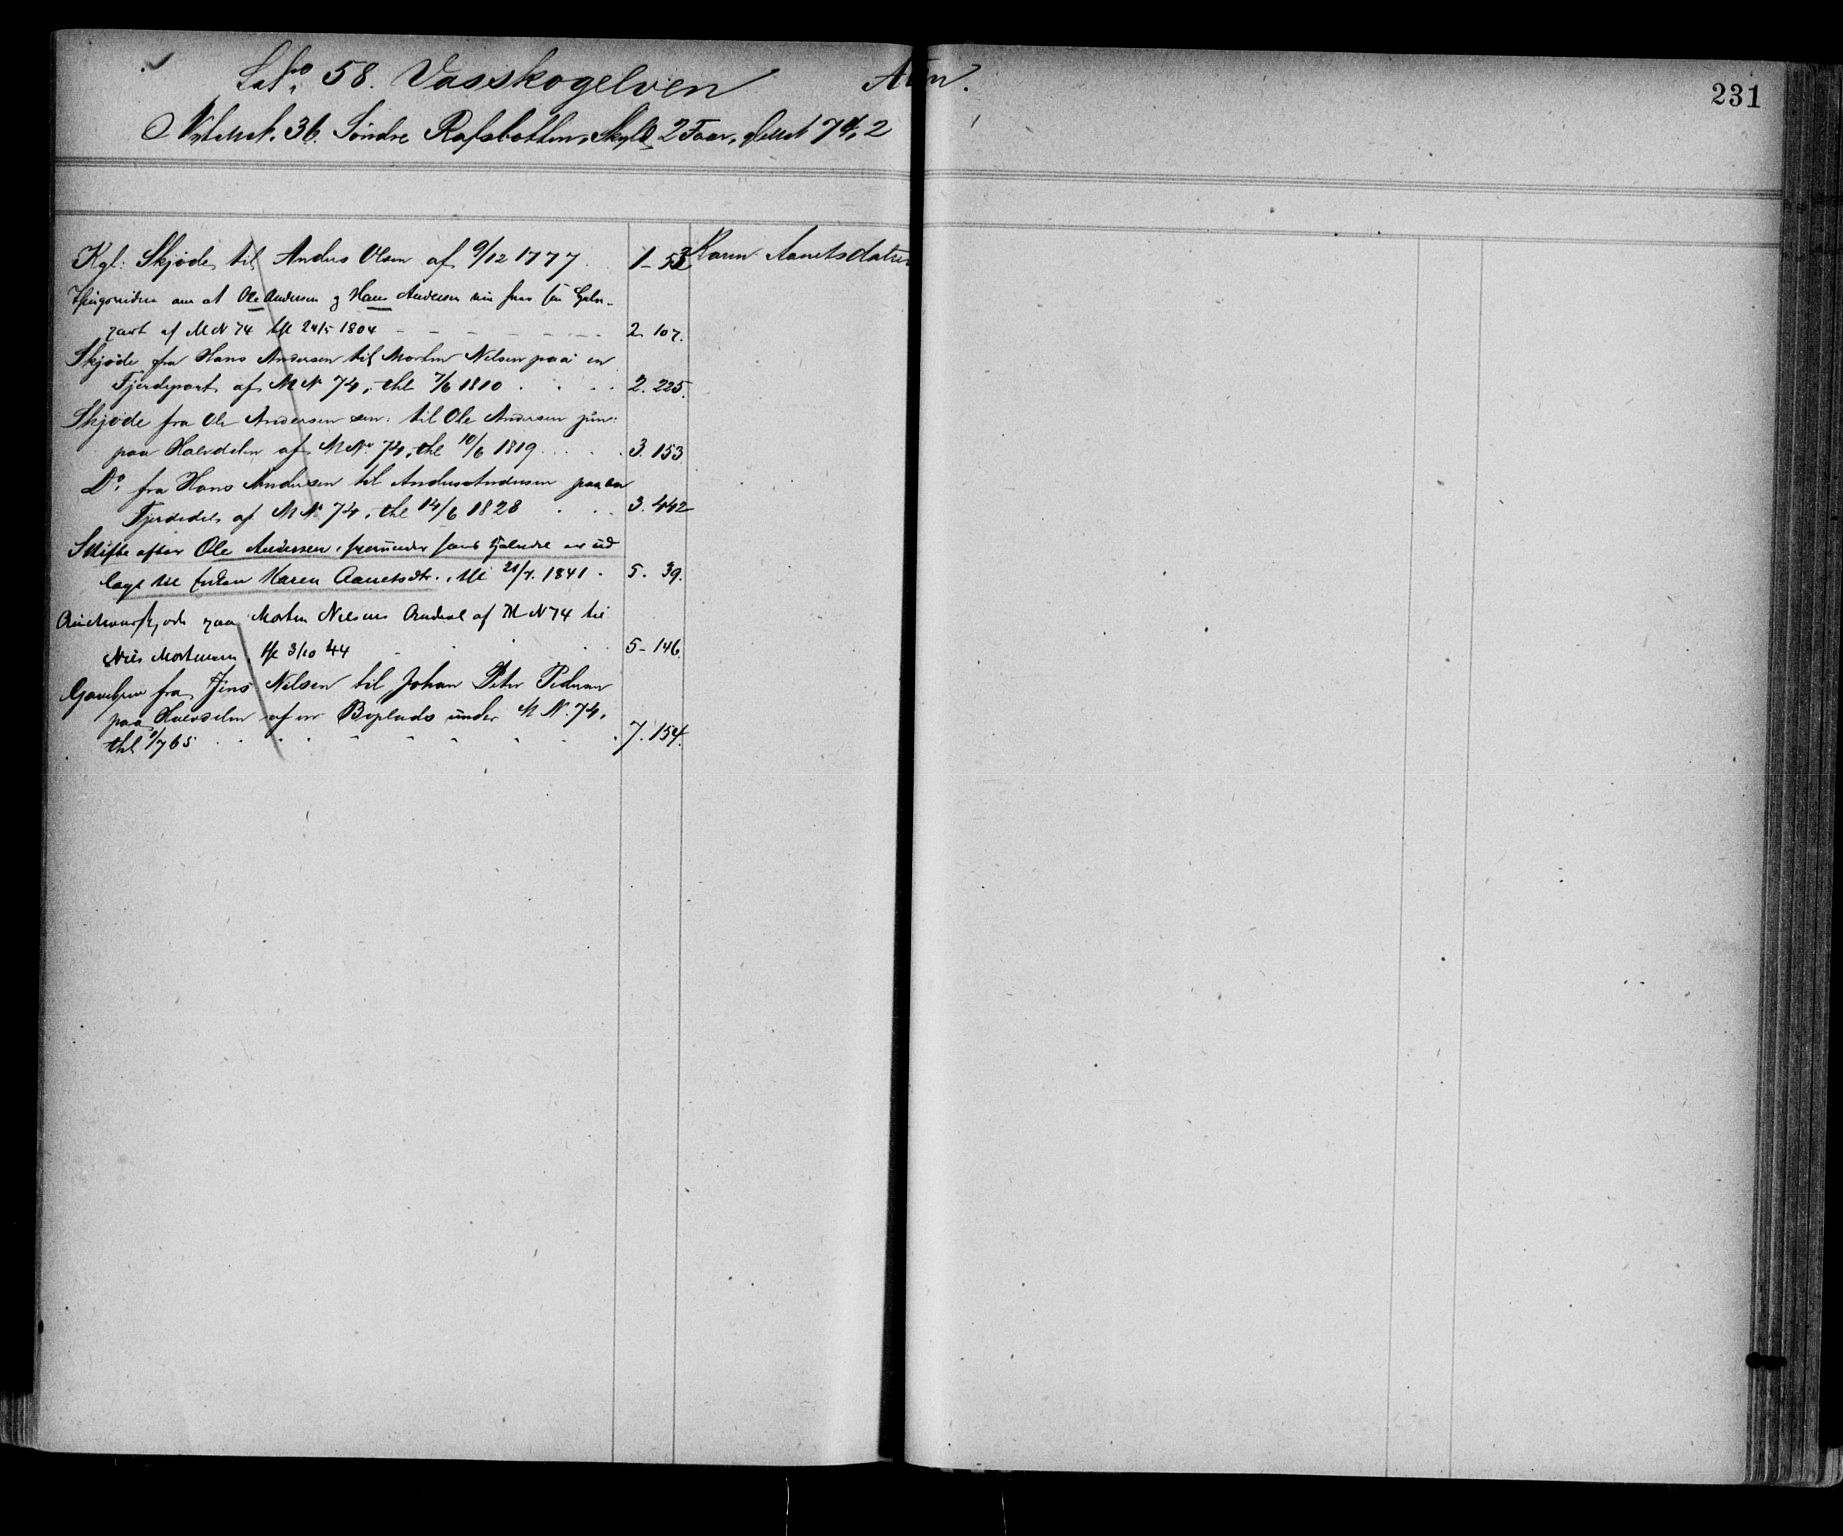 231
Lbº 58. Vasskogelven Alten.
Nytt Mat. 36. Søndre Rafsbotten, Skyld 2 Daler, gl. Mat 74, 2
Kgl: Skjøde til Anders Olsen af 9/12 1777 1-53 Karen Aanetsdatter
Thingsvidne om at Ole Andersen og Hans Andersen
part af M N 74 thl 24/5 1804 2. 107.
Skjøde fra Hans Andersen til Morten Nilsen paa en
Fjerdepart af M N 74, thl 7/6 1810 2. 225.
Skjøde fra Ole Andersen sen: til Ole Andersen jun:
paa Halvdelen af M Nº 74, thl 10/6 1819 3. 153
Dº fra Hans Andersen til Anders Andersen paa en
Fjerdedel af M Nº 74, thl 14/6 1828 3. 442
Skifte efter Ole Andersen, hvorunder hans Ejendel er ud
lagt til Enken Karen Aanetsdtr., thl 21/7. 1841. 5. 39.
Auctionsskjøde paa Morten Nilsens Andeel af M N 74 til
Nils Mortensen, thl 3/10 44 5-146.
Gavebrev fra Jens Nilsen til Johan Peter Pedersen
paa Halvdelen af en Boplads under M N. 74,
thl 1/7 65 7. 154.